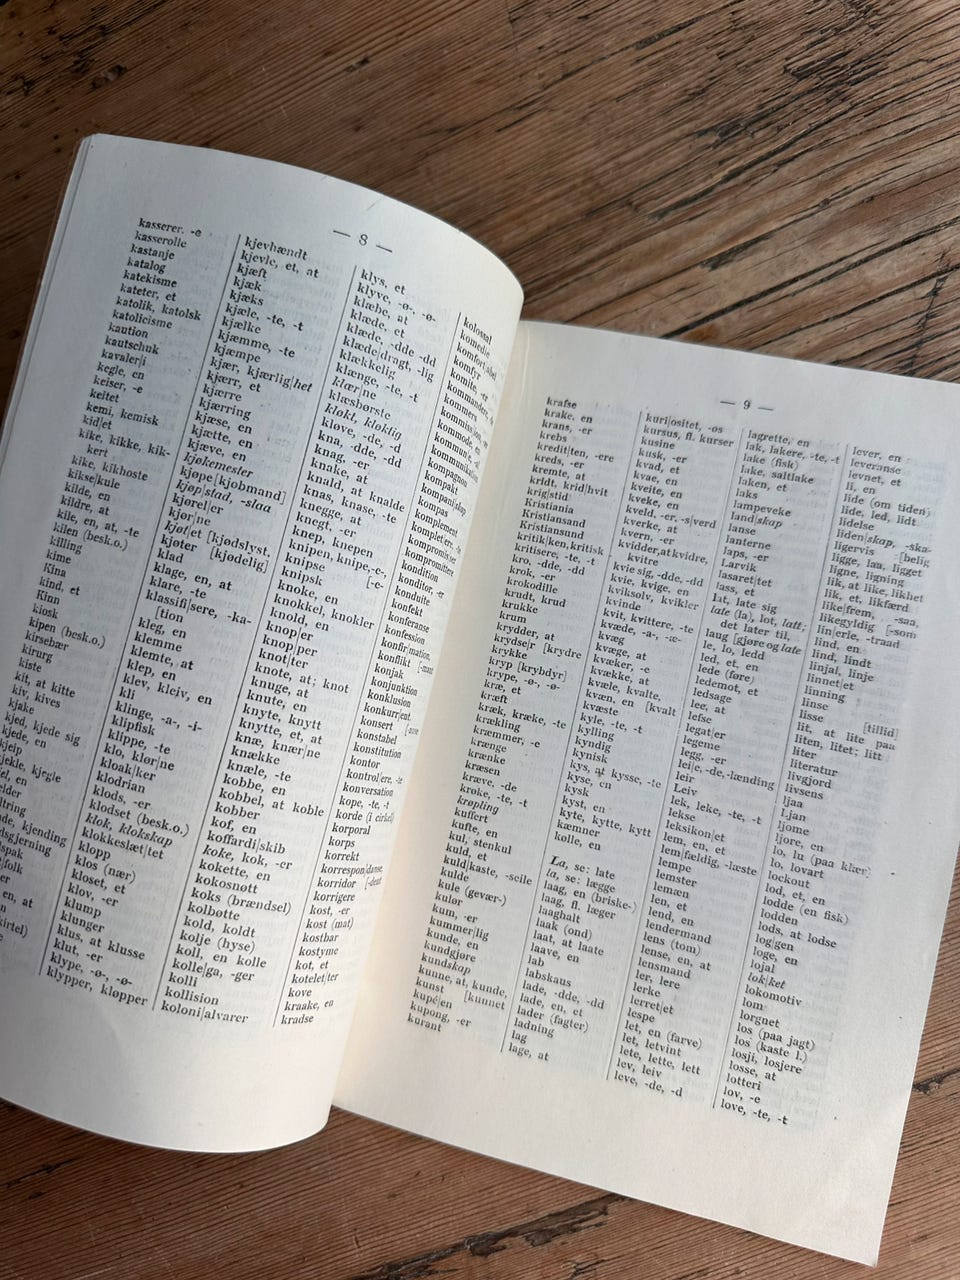 — 8 —
kasserer, -e
kasserolle
kastanje
katalog
katekisme
kateter, et
katolik, katolsk
katolicisme
kaution
kautschuk
kavaler|i
kegle, en
keiser, -e
keitet
kemi, kemisk
kid|et
kike, kikke, kik-
kert
kike, kikhoste
kikse|kule
kilde, en
kildre, at
kile, en, at, -te
kilen (besk.o.)
killing
kime
Kina
kind, et
Kinn
kiosk
kipen (besk.o.)
kirsebær
kirurg
kiste
kit, at kitte
kiv, kives
kjake
kjed, kjede sig
kjede, en
kjelp
kjekle, kjegle
kjevhændt
kjevle, et, at
kjæft
kjæk
kjæks
kjæle, -te, -t
kjælke
kjæmme, -te
kjæmpe
kjær, kjærlig|het
kjærr, et
kjærre
kjærring
kjæse, en
kjætte, en
kjæve, en
kjøkemester
kjøpe [kjobmand]
kjøp|stad, -slaa
kjørel|er
kjør|ne
kjøt|et [kjødslyst,
kjøter [kjødelig]
klad
klage, en, at
klare, -te
klassifi|sere, -ka-
[tion
kleg, en
klemme
klemte, at
klep, en
klev, kleiv, en
kli
klinge, -a-, -i-
klipfisk
klippe, -te
klo, klør|ne
kloak|ker
klodrian
klods, -er
klodset (besk.o.)
klok, klokskap
klokkeslæt|tet
klopp
klos (nær)
kloset, et
klov, -er
klump
klunger
klus, at klusse
klut, -er
klype, -ø-, -ø-
klypper, kløpper
klys, et
klyve, -ø-, -ø-
klæbe, at
klæde, et
klæde, -dde -dd
klæde|dragt, -lig
klækkelig
klænge, -te, -t
klær|ne
klæsbørste
kløkt, kløktig
kløve, -de, -d
kna, -dde, -dd
knag, -er
knake, at
knald, at knalde
knas, knase, -te
knegge, at
knegt, -er
knep, knepen
knipen, knipe,-e-,
knipse [-e-
knipsk
knoke, en
knokkel, knokler
knold, en
knop|per
knot|ter
knote, at; knot
knuge, at
knute, en
knyte, knytt
knytte, et, at
knæ, knær|ne
knække
knæle, -te
kobbe, en
kobbel, at koble
kobber
kof, en
koffardi|skib
koke, kok, -er
kokette, en
kokosnøtt
koks (brændsel)
kolbøtte
kold, koldt
kolje (hyse)
koll, en kolle
kolle|ga, -ger
kolli
kollision
koloni|alvarer
kolossal
komedie
komfyr
kompagnon
kompakt
kompas
komplement
kompromittere
kondition
konditor, -er
konduite
konfekt
konferanse
konfession
konfir|mation,
konflikt [-mant
konjak
konjunktion
konklusion
konkurr|ent
konsert
konstabel
konstitution
kontor
kontrol|ere, -te
konversation
kope, -te, -t
korde (i cirkel)
korporal
korps
korrekt
korrespon|danse,
korridor [-dent
korrigere
kost, -er
kost (mat)
kostbar
kostyme
kot, et
kotelet|ter
kove
kraake, en
kradse
— 9 —
krafse
krake, en
krans, -er
krebs
kredit|ten, -ere
kreds, -er
kremte, at
kridt, krid|hvit
krig|stid
Kristiania
Kristiansand
Kristiansund
kritik|ken, kritisk
kritisere, -te, -t
kro, -dde, -dd
krok, -er
krokodille
krudt, krud
krukke
krum
krydder, at
krydse|r [krydre
krykke
kryp [krybdyr]
krype, -ø-, -ø-
kræ, et
kræft
kræk, kræke, -te
krækling
kræmmer, -e
krænge
krænke
kræsen
kræve, -de
krøke, -te, -t
krøpling
kuffert
kufte, en
kul, stenkul
kuld, et
kuld|kaste, -seile
kulde
kule (gevær-)
kulør
kum, -er
kummer|lig
kunde, en
kundgjøre
kundskap
kunne, at, kunde,
kunst [kunnet
kupé|en
kupong, -er
kurant
kuri|ositet, -øs
kursus, fl. kurser
kusine
kusk, -er
kvad, et
kvae, en
kveite, en
kveke, en
kveld, -er, -s|verd
kverke, at
kvern, -er
kvidder,atkvidre,
kvitre
kvie sig, -dde, -dd
kvie, kvige, en
kviksølv, kvikler
kvinde
kvit, kvittere, -te
kvæde, -a-, -æ-
kvæg
kvæge, at
kvæker, -e
kvække, at
kvæle, kvalte,
kvæn, en [kvalt
kvæste
kyle, -te, -t
kylling
kyndig
kynisk
kys, at kysse, -te
kyse, en
kysk
kyst, en
kyte, kytte, kytt
kæmner
kølle, en
La, se: late
la, se: lægge
laag, en (briske-)
laag, fl. læger
laaghalt
laak (ond)
laat, at laate
laave, en
lab
labskaus
lade, -dde, -dd
lade, en, et
lader (fagter)
ladning
lag
lage, at
lagrette, en
lak, lakere, -te, -t
lake (fisk)
lake, saltlake
laken, et
laks
lampeveke
land|skap
lanse
lanterne
laps, -er
Larvik
lasaret|tet
lass, et
lat, late sig
late (la), lot, latt;
det later til,
laug [gjøre og late
le, lo, ledd
led, et, en
lede (føre)
ledemot, et
ledsage
lee, at
lefse
legat|er
legeme
legg, -er
lei|e,-de,-lænding
leir
Leiv
lek, leke, -te, -t
lekse
leksikon|et
lem, en, et
lem|fældig, -læste
lempe
lemster
lemæn, et
len, et
lend, en
lendermand
lens (tom)
lense, en, at
lensmand
ler, lere
lerke
lerret|et
lespe
let, en (farve)
let, letvint
lete, lette, lett
lev, leiv
leve, -de, -d
lever, en
leveranse
levnet, et
li, en
lide (om tiden)
lide, led, lidt
lidelse
liden|skap, -ska-
ligervis [belig
ligge, laa, ligget
ligne, ligning
lik, at like, likhet
lik, et, likfærd
like|frem, -saa,
likegyldig [-som
lin|erle, -traad
lind, en
lind, lindt
linjal, linje
linnet|et
linning
linse
lisse [tillid]
lit, at lite paa
liten, litet; litt
liter
literatur
livgjord
livsens
ljaa
Ljan
ljome
ljore, en
lo, lu (paa klær)
lo, lovart
lockout
lod, et, en
lodde (en fisk)
lodden
lods, at lodse
log|gen
loge, en
lojal
lok|ket
lokomotiv
lom
lorgnet
los (paa jagt)
los (kaste l.)
losji, losjere
losse, at
lotteri
lov, -e
love, -te, -t